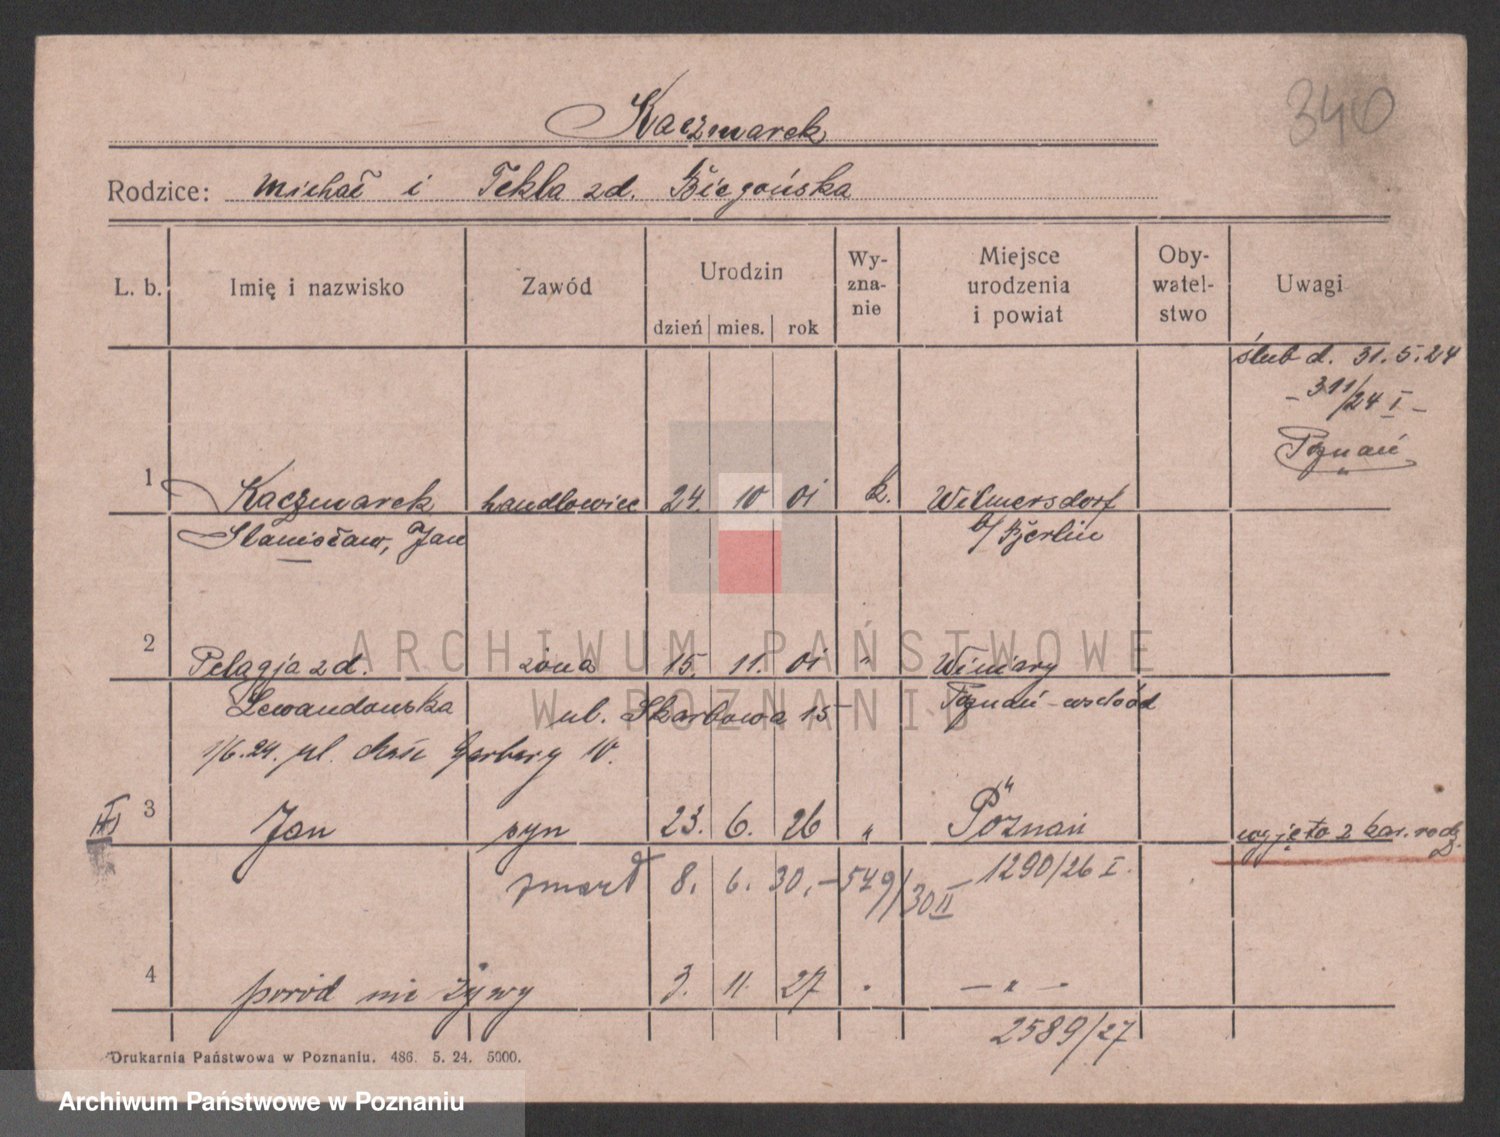 340
Kaczmarek
Rodzice: Michał i Tekla zd. Biegońska
L. b. Imię i nazwisko Zawód Urodzin Wy- Miejsce Oby- Uwagi
zna- urodzenia watel-
nie i powiat stwo
dzień mies. rok
ślub d. 31.5.24
- 311/24 I -
Poznań
1 Kaczmarek handlowiec 24. 10 01 k. Wilmersdorf
Stanisław, Jan b/ Berlin
2 Pelagja zd. żona 15. 11. 01 " Winiary
Lewandowska ul. Skarbowa 15 Poznań-wschód
1/6.24. ul. Garbary 10.
3 Jan syn 23. 6. 26 " Poznań wyjęto z kar. rodz.
zmarł 8. 6. 30, - 549/30 II - 1290/26 I.
4 poród nie żywy 3. 11. 27 " - " -
2589/27
Drukarnia Państwowa w Poznaniu. 486. 5. 24. 5000.
ARCHIWUM PAŃSTWOWE
W POZNANIU
Archiwum Państwowe w Poznaniu